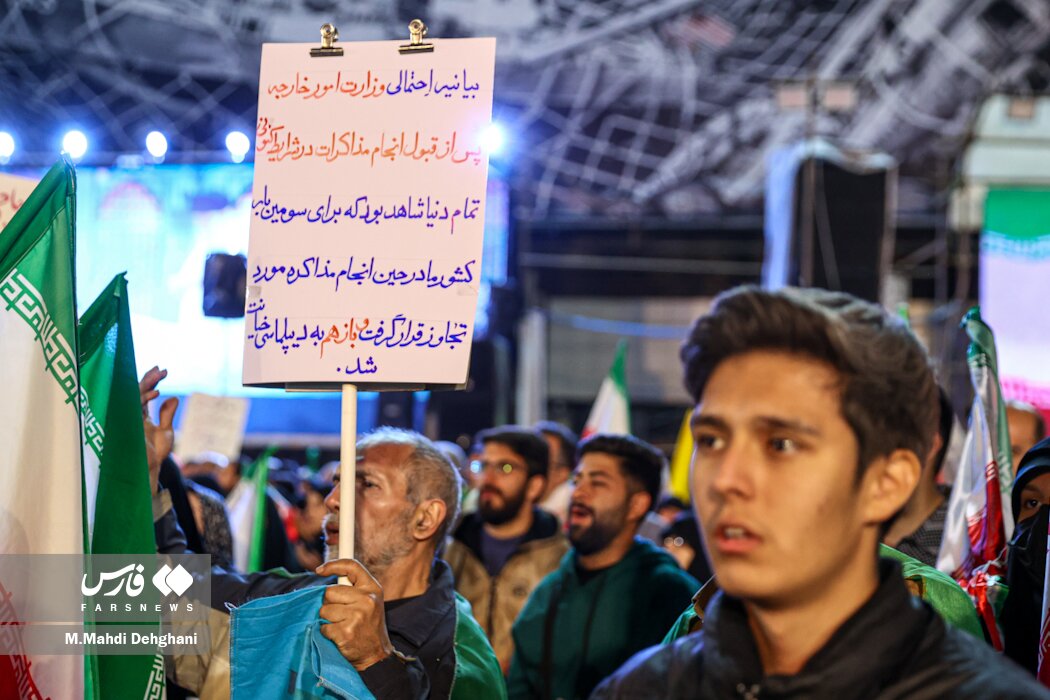 بیانیه احتمالی وزارت امور خارجه
پس از قبول انجام مذاکرات در شرایط کنونی
تمام دنیا شاهد بود که برای سومین بار
کشور ما در حین انجام مذاکره مورد
تجاوز قرار گرفت و باز هم به دیپلماسی خیانت
شد.
فارس
FARSNEWS
M.Mahdi Dehghani